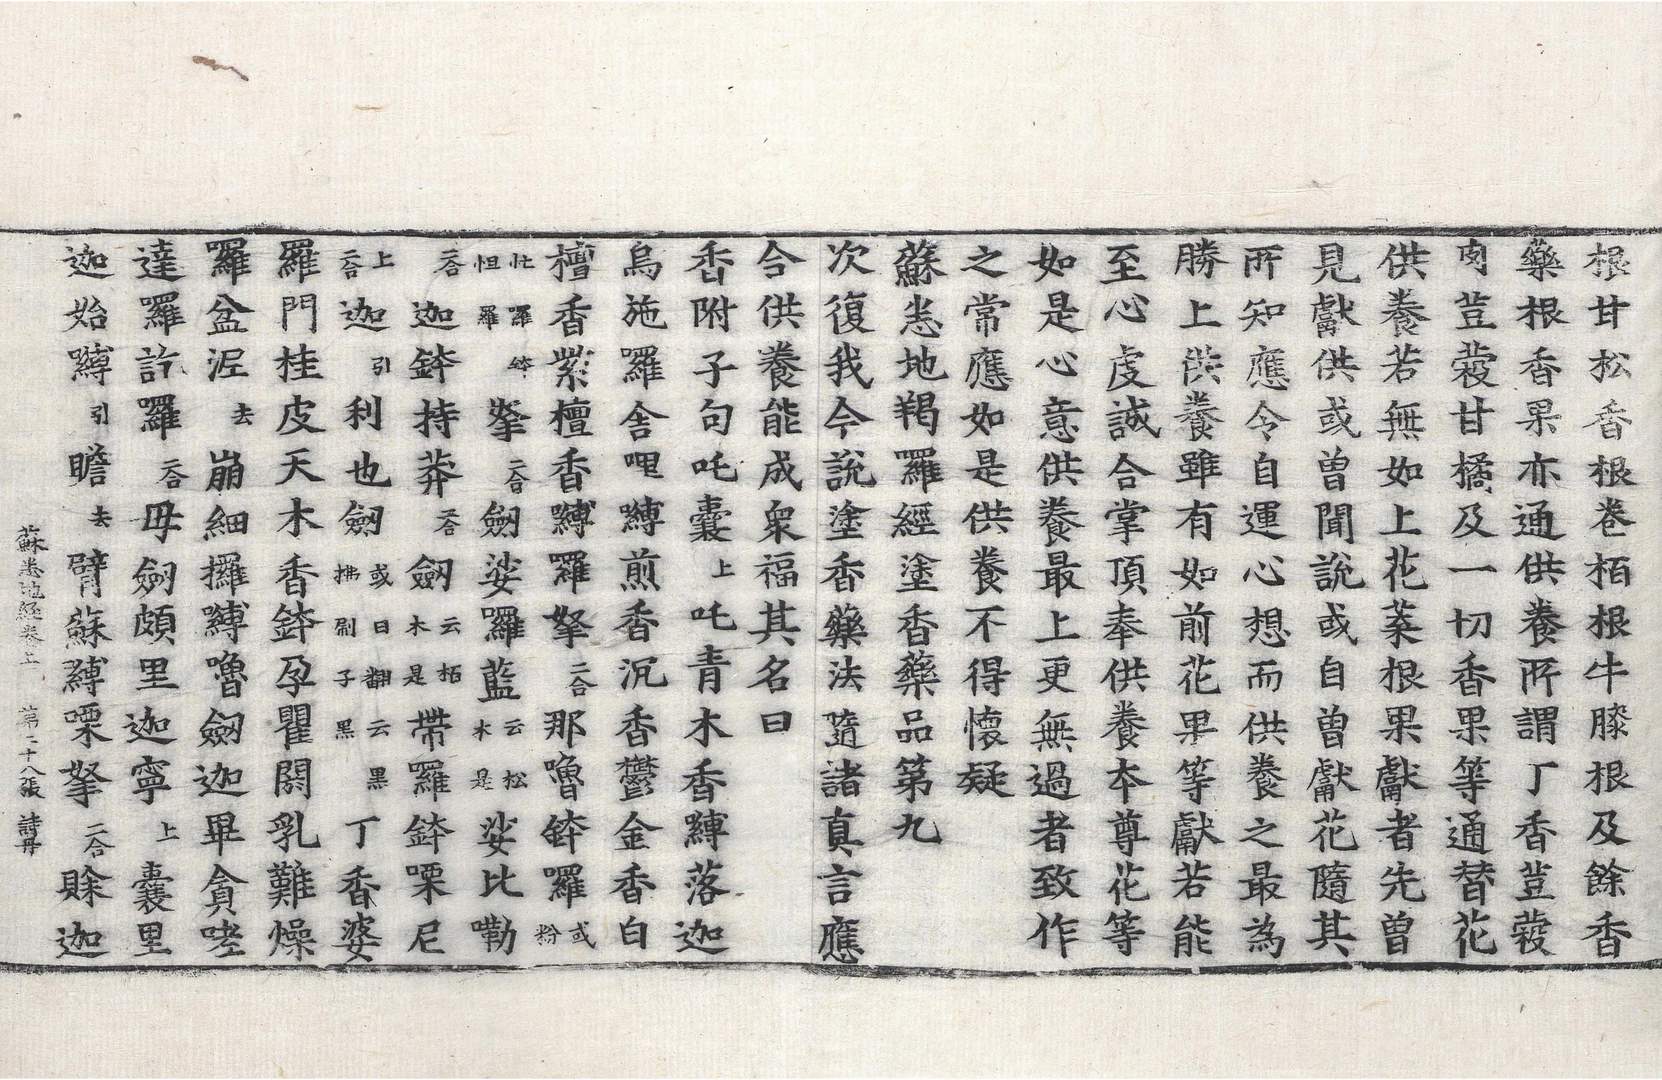 根甘松香根卷栢根牛膝根及餘香
藥根香果亦通供養所謂丁香荳蔻
肉荳蔻甘橘及一切香果等通替花
供養若無如上花葉根果獻者先曾
見獻供或曾聞說或自曾獻花隨其
所知應令自運心想而供養之最為
勝上供養雖有如前花果等獻若能
至心虔誠合掌頂奉供養本尊花等
如是心意供養最上更無過者致作
之常應如是供養不得懷疑
蘇悉地羯羅經塗香藥品第九
次復我今說塗香藥法隨諸真言應
合供養能成眾福其名曰
香附子句吒囊上吒青木香嚩落迦
烏施羅舍哩嚩煎香沉香鬱金香白
檀香紫檀香嚩羅拏二合那嚕鉢羅或粉
忙囉鉢怛羅拏二合劒娑羅藍云松木是娑比嘞
二合迦鉢持莽二合劒云栢木是帶羅鉢㗚尼
上二合迦引利也劒或曰翻云黑拂剧子黑丁香婆
羅門桂皮天木香鉢孕瞿閼乳難燥
羅盆泥去崩細攞嚩嚕劒迦畢貪咾
達羅訖羅二合毋劒頗里迦寧上囊里
迦始嚩引瞻去臂蘇嚩㗚拏二合賒迦
蘇悉地經卷上 第二十八張 詩毋